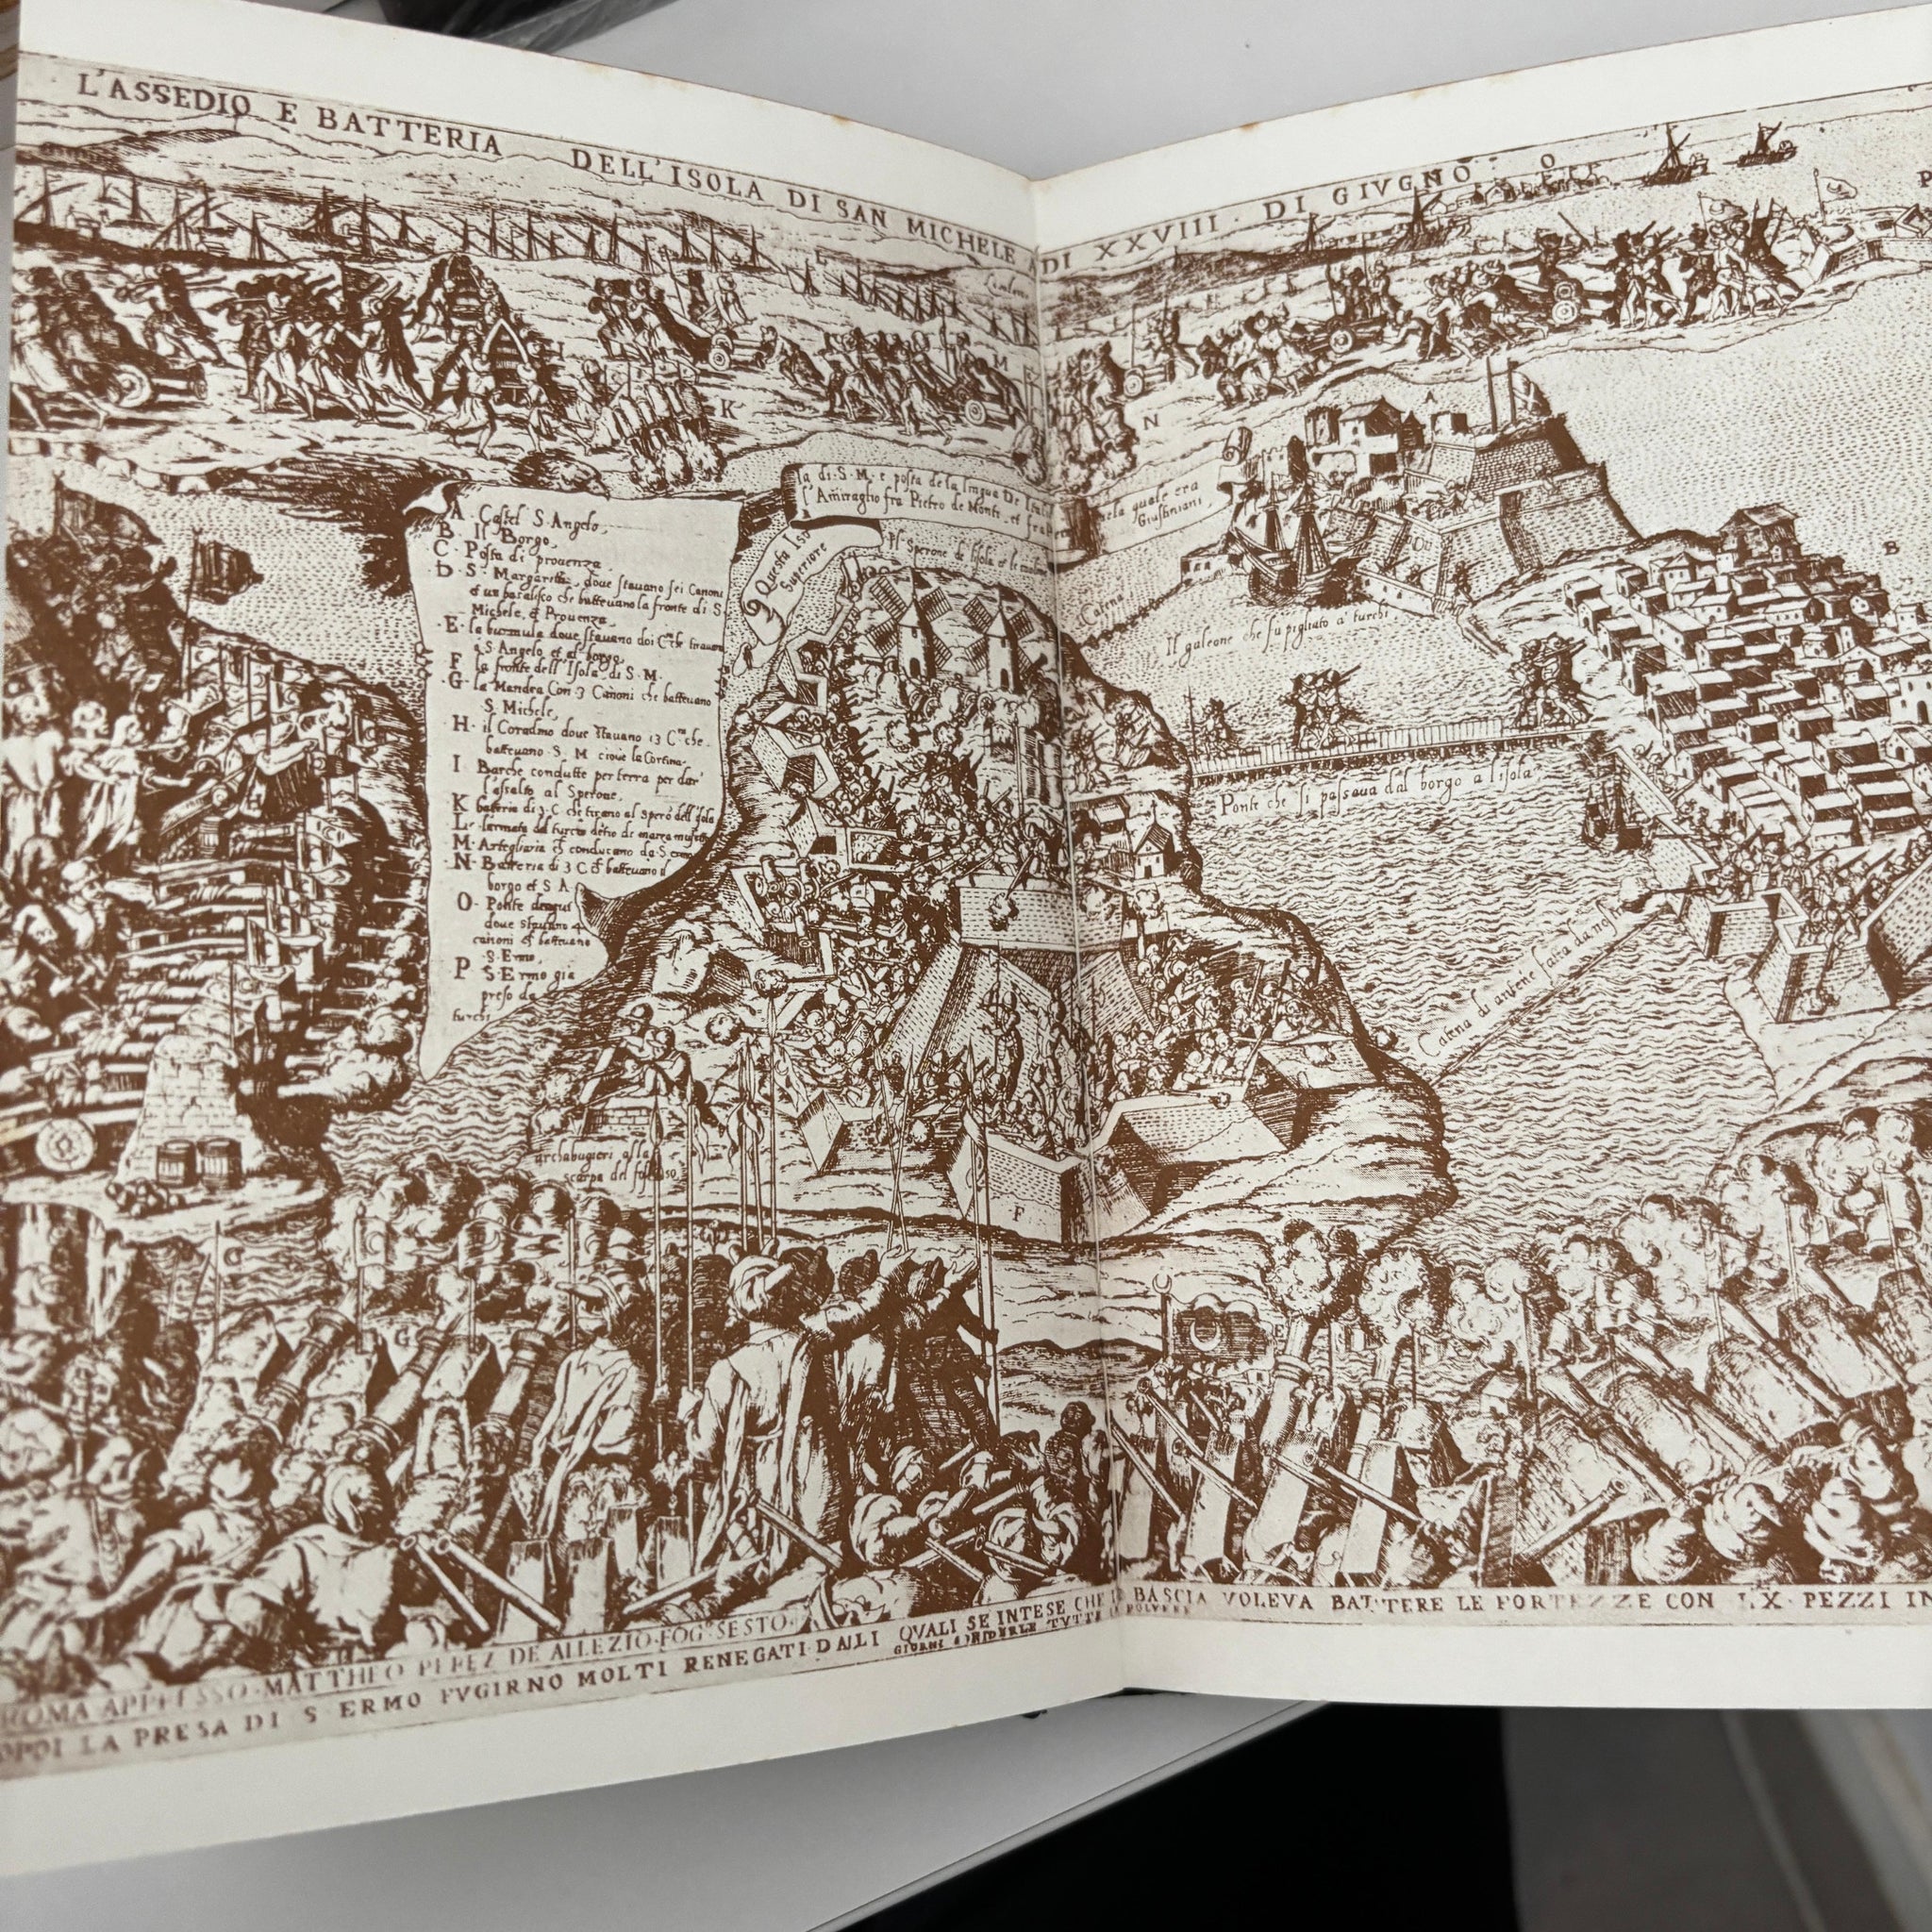 L'ASSEDIO E BATTERIA DELL'ISOLA DI SAN MICHELE ADI XXVIII · DI GIVGNO
O
P
L
M
K
N
A
B
A Castel S. Angelo,
B. Il Borgo,
C · Posta di prouenza
D S. Margarita, doue stauano sei Canoni
et un basalisco che batteuano la fronte di S.
Michele, et Prouenza.
E · la burmula doue stauano doi C.ⁿⁱ che tirauan
a S Angelo et al borgo
F la fronte dell'Isola di S. M.
G · la Mandra Con 3 Canoni che batteuano
S. Michele,
H · il Coradino doue stauano 13 C.ⁿⁱ che
batteuano S. M cioue la Cortina
I Barche condutte per terra per dar'
l'assalto al Sperone,
K batteria di 3 C che tirano al spero dell'isola
L · l'armata del turcho detro de marza
M · Artegliaria conducano da S.
N · Batteria di 3 C batteuano il
borgo et S A
O · Ponte
doue stauano 4
canoni et batteuano
S. Ermo,
P S. Ermo gia
preso da
turchi
Questa Iso
la di S. M. e posta de la lingua De Italia nela quale era
Superiore l'Amiraglio fra Pietro de Monte et fra Giustiniani,
Il Sperone de lisola et le
Catena
Il galeone che fu pigliato a' turchi
Ponte che si passaua dal borgo a lisola
Catena di antene fatta da
archabugieri alla
scarpa del fosso
F
G
E
ROMA APPRESSO · MATTHEO PEREZ DE ALLEZIO · FOG° SESTO ·
DOPOI LA PRESA DI S ERMO FVGIRNO MOLTI RENEGATI · DALLI QVALI SE INTESE CHE IL BASCIA VOLEVA BATTERE LE FORTEZZE CON LX · PEZZI IN
GIORNI TVTTE IN POLVERE